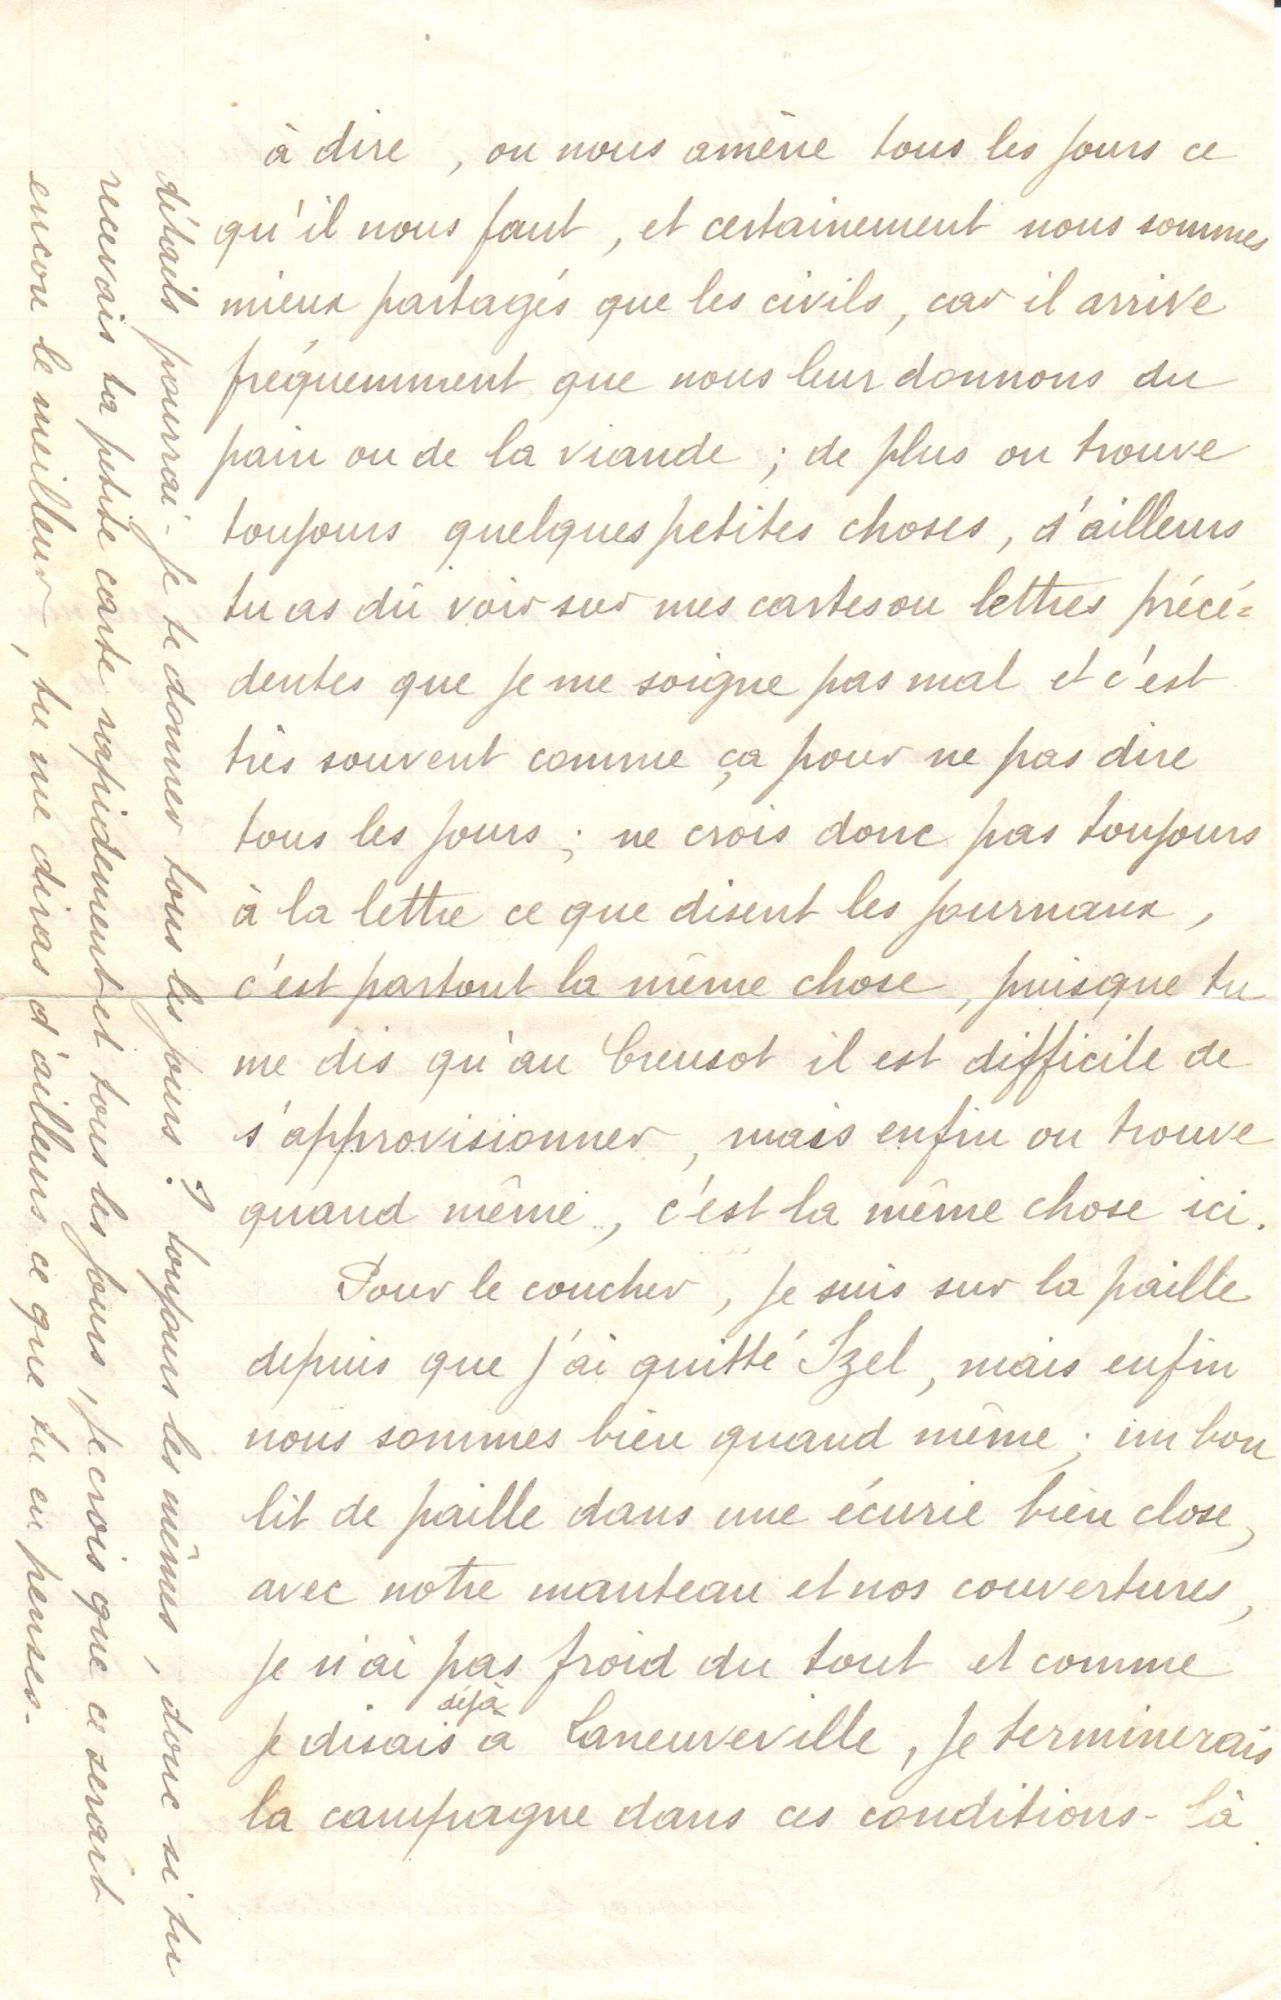 à dire , on nous amène tous les jours ce
qu'il nous faut , et certainement nous sommes
mieux partagés que les civils , car il arrive
fréquemment que nous leur donnons du
pain ou de la viande ; de plus on trouve
toujours quelques petites choses , d'ailleurs
tu as dû voir sur mes cartes ou lettres précé=
dentes que je me soigne pas mal et c'est
très souvent comme ça pour ne pas dire
tous les jours ; ne crois donc pas toujours
à la lettre ce que disent les journaux ,
c'est partout la même chose , puisque tu
me dis qu'au Creusot il est difficile de
s'approvisionner , mais enfin on trouve
quand même , c'est la même chose ici .
Pour le coucher , je suis sur la paille
depuis que j'ai quitté Izel , mais enfin
nous sommes bien quand même ; un bon
lit de paille dans une écurie bien close ,
avec notre manteau et nos couvertures ,
je n'ai pas froid du tout et comme
je disais déjà à Laneuveville , je terminerais
la campagne dans ces conditions - là
détails pourrai - je te donner tous les jours ? toujours les mêmes , donc si tu
recevais ta petite carte rapidement et tous les jours , je crois que ce serait
encore le meilleur , tu me diras d'ailleurs ce que tu en penses .